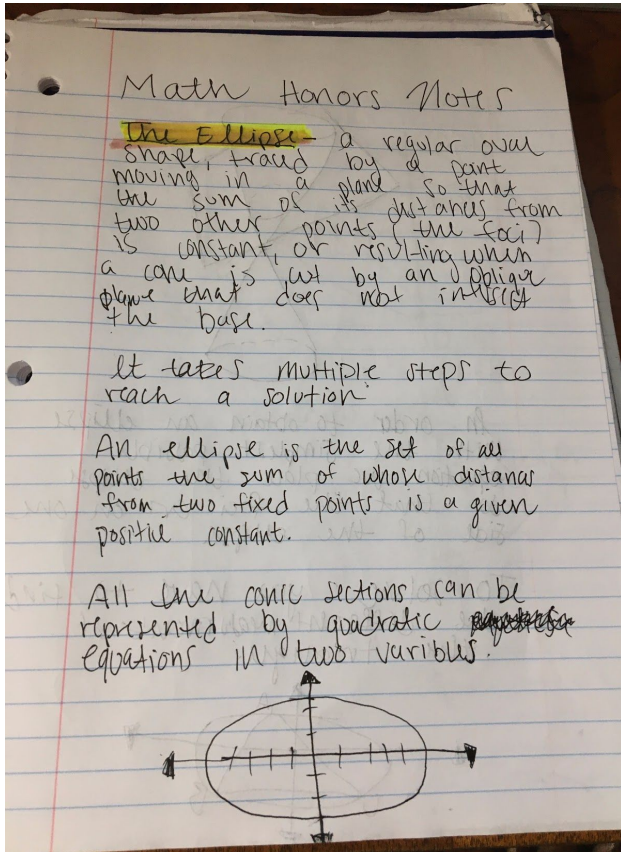 Math Honors Notes
The Ellipse - a regular oval
shape, traced by a point
moving in a plane so that
the sum of its distances from
two other points (the foci)
is constant, or resulting when
a cone is cut by an oblique
plane that does not intersect
the base.
It takes multiple steps to
reach a solution.
An ellipse is the set of all
points the sum of whose distances
from two fixed points is a given
positive constant.
All the conic sections can be
represented by quadratic
equations in two varibles.